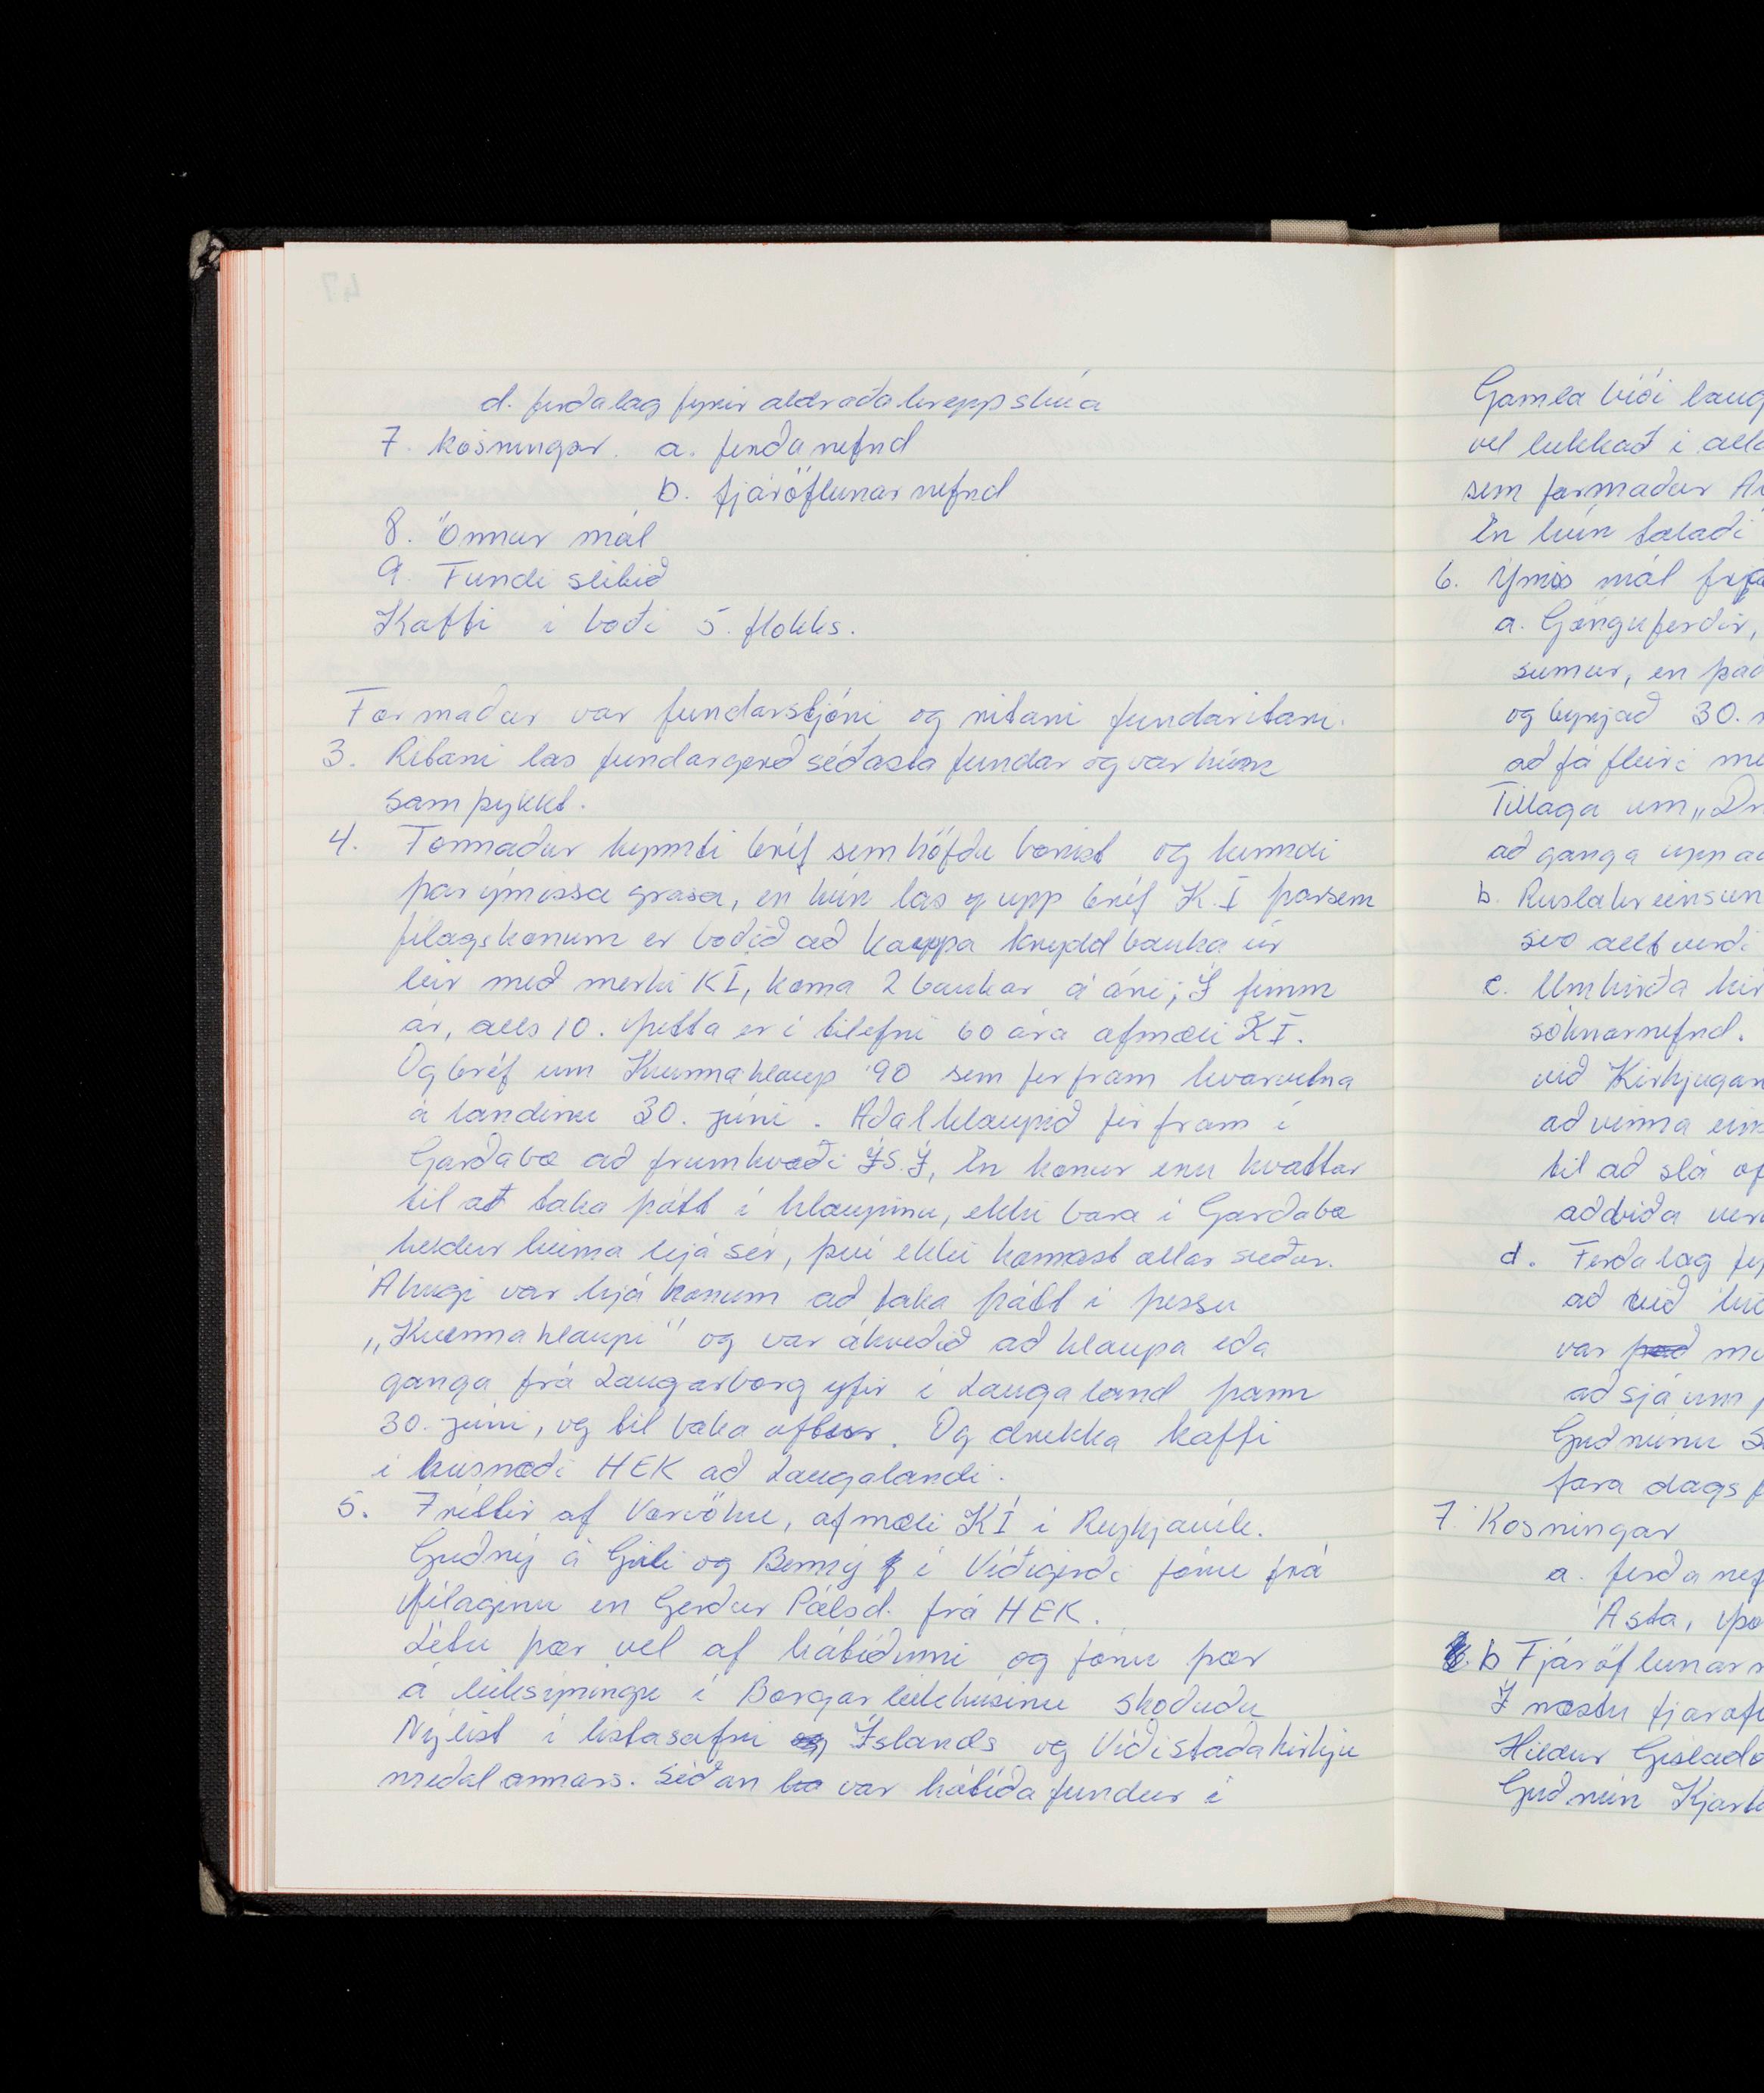 d. ferðalag fyrir aldraða hreppsbúa
7. kosningar. a. ferðanefnd
b. fjáröflunarnefnd
8. Önnur mál
9. Fundi slitið
Kaffi í boði 5. flokks.
Formaður var fundarstjóri og ritari fundaritari.
3. Ritari las fundargerð síðasta fundar og var hún
samþykkt.
4. Formaður kynnti bréf sem höfðu borist og kenndi
þar ýmissa grasa, en hún las upp bréf K.Í þarsem
félagskonum er boðið að kaupa kryddbauka úr
leir með merki KÍ, koma 2 baukar á ári, Í fimm
ár, alls 10. Þetta er í tilefni 60 ára afmæli KÍ.
Og bréf um Kvennahlaup '90 sem fer fram hvarvetna
á landinu 30. júní. Aðalhlaupið fer fram í
Garðabæ að frumkvæði ÍS.Í, En konur eru hvattar
til að taka þátt í hlaupinu, ekki bara í Garðabæ
heldur heima hjá sér, því ekki komast allar suður.
Áhugi var hjá konum að taka þátt í þessu
„Kvennahlaupi" og var ákveðið að hlaupa eða
ganga frá Laugarborg yfir í Laugaland þann
30. júní, og til baka aftur. Og drekka kaffi
í húsnæði HEK að Laugalandi.
5. Fréttir af Vorvöku, afmæli KÍ í Reykjavík.
Guðný á Gili og Benný í Víðigerði fóru frá
félaginu en Gerður Pálsd. frá HEK.
Létu þær vel af hátíðinni og fóru þær
á leiksýningu í Borgarleikhúsinu skoðuðu
Nýlist í listasafni Íslands og Víðistaðakirkju
meðal annars. Síðan var hátíðafundur í
Gamla bíói
vel lukkað í
sem formaður
En hún talaði
6. Ýmis mál
a. Gönguferðir,
sumur, en það
og byrjað 30.
að fá fleiri
Tillaga um
að ganga upp
b. Ruslahreinsun
svo allt verði
c. Umhirða
sóknarnefnd.
við
að vinna
til að slá
að bíða
d. Ferðalag
að við
var það
að sjá um
Guðrúnu
fara dags
7. Kosningar
a.
Ásta,
b
Í næstu
Hildur
Guðrún